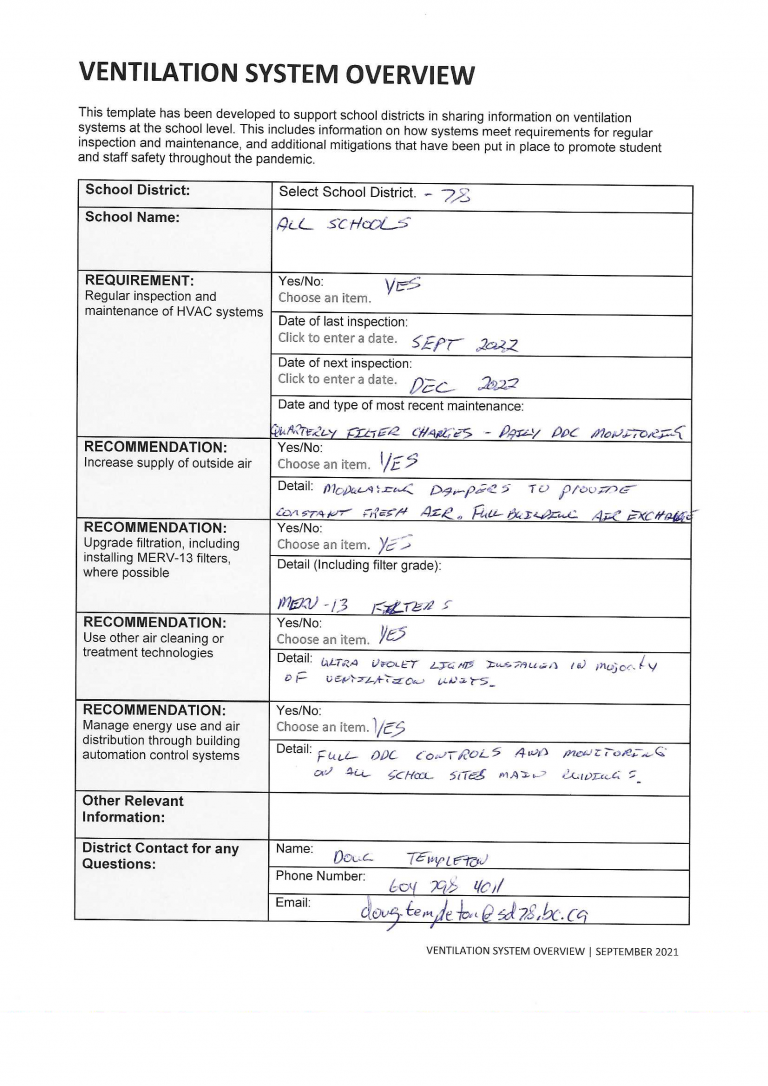 VENTILATION SYSTEM OVERVIEW
This template has been developed to support school districts in sharing information on ventilation
systems at the school level. This includes information on how systems meet requirements for regular
inspection and maintenance, and additional mitigations that have been put in place to promote student
and staff safety throughout the pandemic.
School District:
Select School District. - 78
School Name:
ALL SCHOOLS
REQUIREMENT:
Regular inspection and
maintenance of HVAC systems
Yes/No:
Choose an item. YES
Date of last inspection:
Click to enter a date. SEPT 2022
Date of next inspection:
Click to enter a date. DEC 2022
Date and type of most recent maintenance:
QUARTERLY FILTER CHANGES - DAILY DDC MONITORING
RECOMMENDATION:
Increase supply of outside air
Yes/No:
Choose an item. YES
Detail: MODULATING DAMPERS TO PROVIDE
CONSTANT FRESH AIR. FULL BUILDING AIR EXCHANGE
RECOMMENDATION:
Upgrade filtration, including
installing MERV-13 filters,
where possible
Yes/No:
Choose an item. YES
Detail (Including filter grade):
MERV-13 FILTERS
RECOMMENDATION:
Use other air cleaning or
treatment technologies
Yes/No:
Choose an item. YES
Detail: ULTRA VIOLET LIGHTS INSTALLED IN majority
OF VENTILATION UNITS.
RECOMMENDATION:
Manage energy use and air
distribution through building
automation control systems
Yes/No:
Choose an item. YES
Detail: FULL DDC CONTROLS AND MONITORING
ON ALL SCHOOL SITES MAIN
Other Relevant
Information:
District Contact for any
Questions:
Name: DOUG TEMPLETON
Phone Number: 604 798 4011
Email: doug.templeton@sd78.bc.ca
VENTILATION SYSTEM OVERVIEW | SEPTEMBER 2021